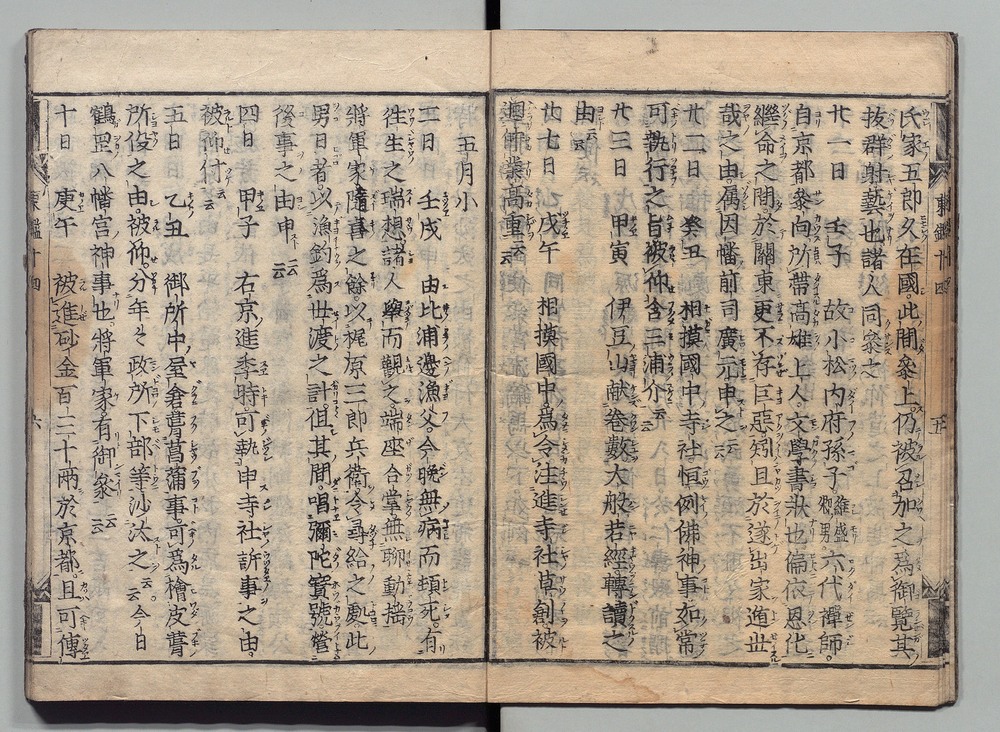 氏家五郎久在國。此間參上。仍被召加之。爲御覽其
拔群射藝也。諸人同參之
廿一日　壬子　故小松内府孫子維盛卿男六代禪師。
自京都參向。所帶高雄上人文學書狀也。偏依恩化
繼命之間。於關東更不存巨惡。矧且於遂出家遁世
哉之由。属因幡前司廣元申之云云
廿二日　癸丑　相摸國中寺社恒例佛神事如常
可執行之旨。被仰含三浦介云云
廿三日　甲寅　伊豆山献卷數大般若經轉讀之
由云云
廿七日　戊午　相摸國中。爲令注進寺社草創被
廻仲業高重云云
五月小
二日　壬戌　由比浦邊漁父。今晩無病而頓死。有
徃生之瑞想。諸人擧而觀之。端座合掌無聊動搖
將軍家隨喜之餘。以梶原三郎兵衛令尋給之處。此
男日者以漁釣爲世渡之計。但其間。唱彌陀寶號。營
後事之由申云云
四日　甲子　右京進季時。可執申寺社訴事之由。
被仰付云云
五日　乙丑　御所中屋舍葺菖蒲事。可爲檜皮葺
所役之由。被仰分。年々政所下部等沙汰之云云。今日
鶴岡八幡宮神事也。將軍家有御參云云
十日　庚午　被進砂金百二十兩於京都。且可傳
東鑑十四
五
東鑑十四
六